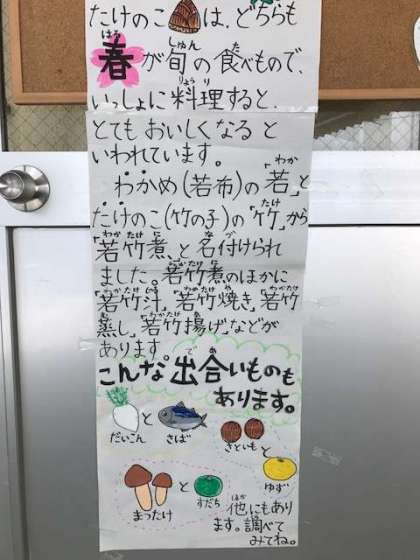 たけのこは、どちらも
春が旬の食べもので、
いっしょに料理すると、
とてもおいしくなると
いわれています。
わかめ(若布)の「若」と
たけのこ(竹の子)の「竹」から
「若竹煮」と名付けられ
ました。若竹煮のほかに
「若竹汁」「若竹焼き」「若竹
蒸し」「若竹揚げ」などが
あります。
こんな出合いものも
あります。
だいこん と さば
さといも と ゆず
まつたけ と すだち
他にもあり
ます。調べて
みてね。